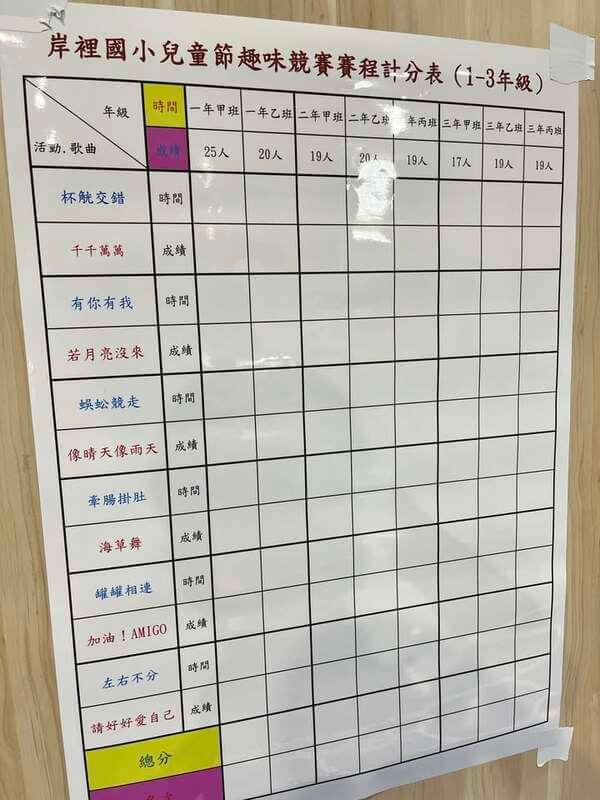 岸裡國小兒童節趣味競賽賽程計分表（1-3年級）
年級 時間 一年甲班 一年乙班 二年甲班 二年乙班 年丙班 三年甲班 三年乙班 三年丙班
活動.歌曲 成績 25人 20人 19人 20人 19人 17人 19人 19人
杯觥交錯 時間
千千萬萬 成績
有你有我 時間
若月亮沒來 成績
蜈蚣競走 時間
像晴天像雨天 成績
牽腸掛肚 時間
海草舞 成績
罐罐相連 時間
加油！AMIGO 成績
左右不分 時間
請好好愛自己 成績
總分